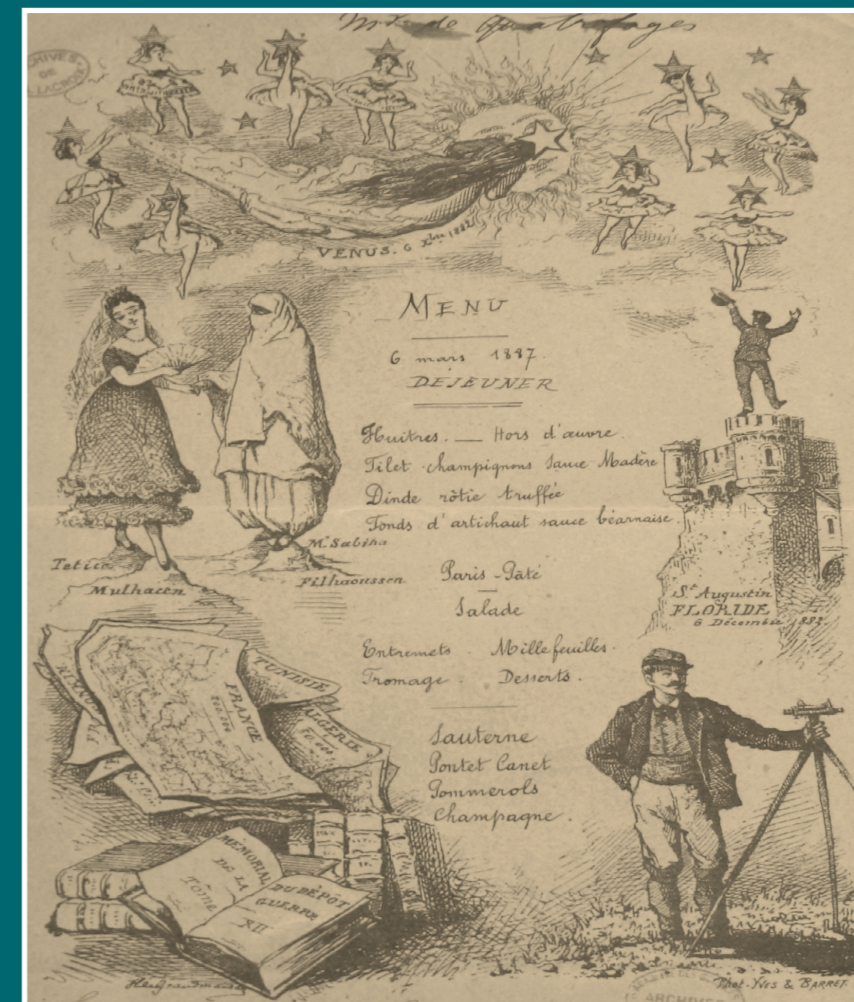 Mr de Quatrefages
ARCHIVES
DE
LACROIX
VENUS. 6 Xbre 1882
MENU
6 mars 1887.
DEJEUNER
Huitres. — Hors d'œuvre.
Filet champignons sauce Madère
Dinde rôtie truffée
Fonds d'artichaut sauce béarnaise.
Paris-Pâté
Salade
Entremets. Mille feuilles.
Fromage. Desserts.
Sauterne
Pontet Canet
Pommerols
Champagne.
Tetica
Mulhacen
Mr Sabiha
Filhaoussen
St Augustin
FLORIDE
6 Décembre 1882
FRANCE
TUNISIE
ALGERIE
MEMORIAL
DE LA
TOME
DU DÉPÔT
GUERRE
XII
Phot. YVES & BARRET
ARCHIV